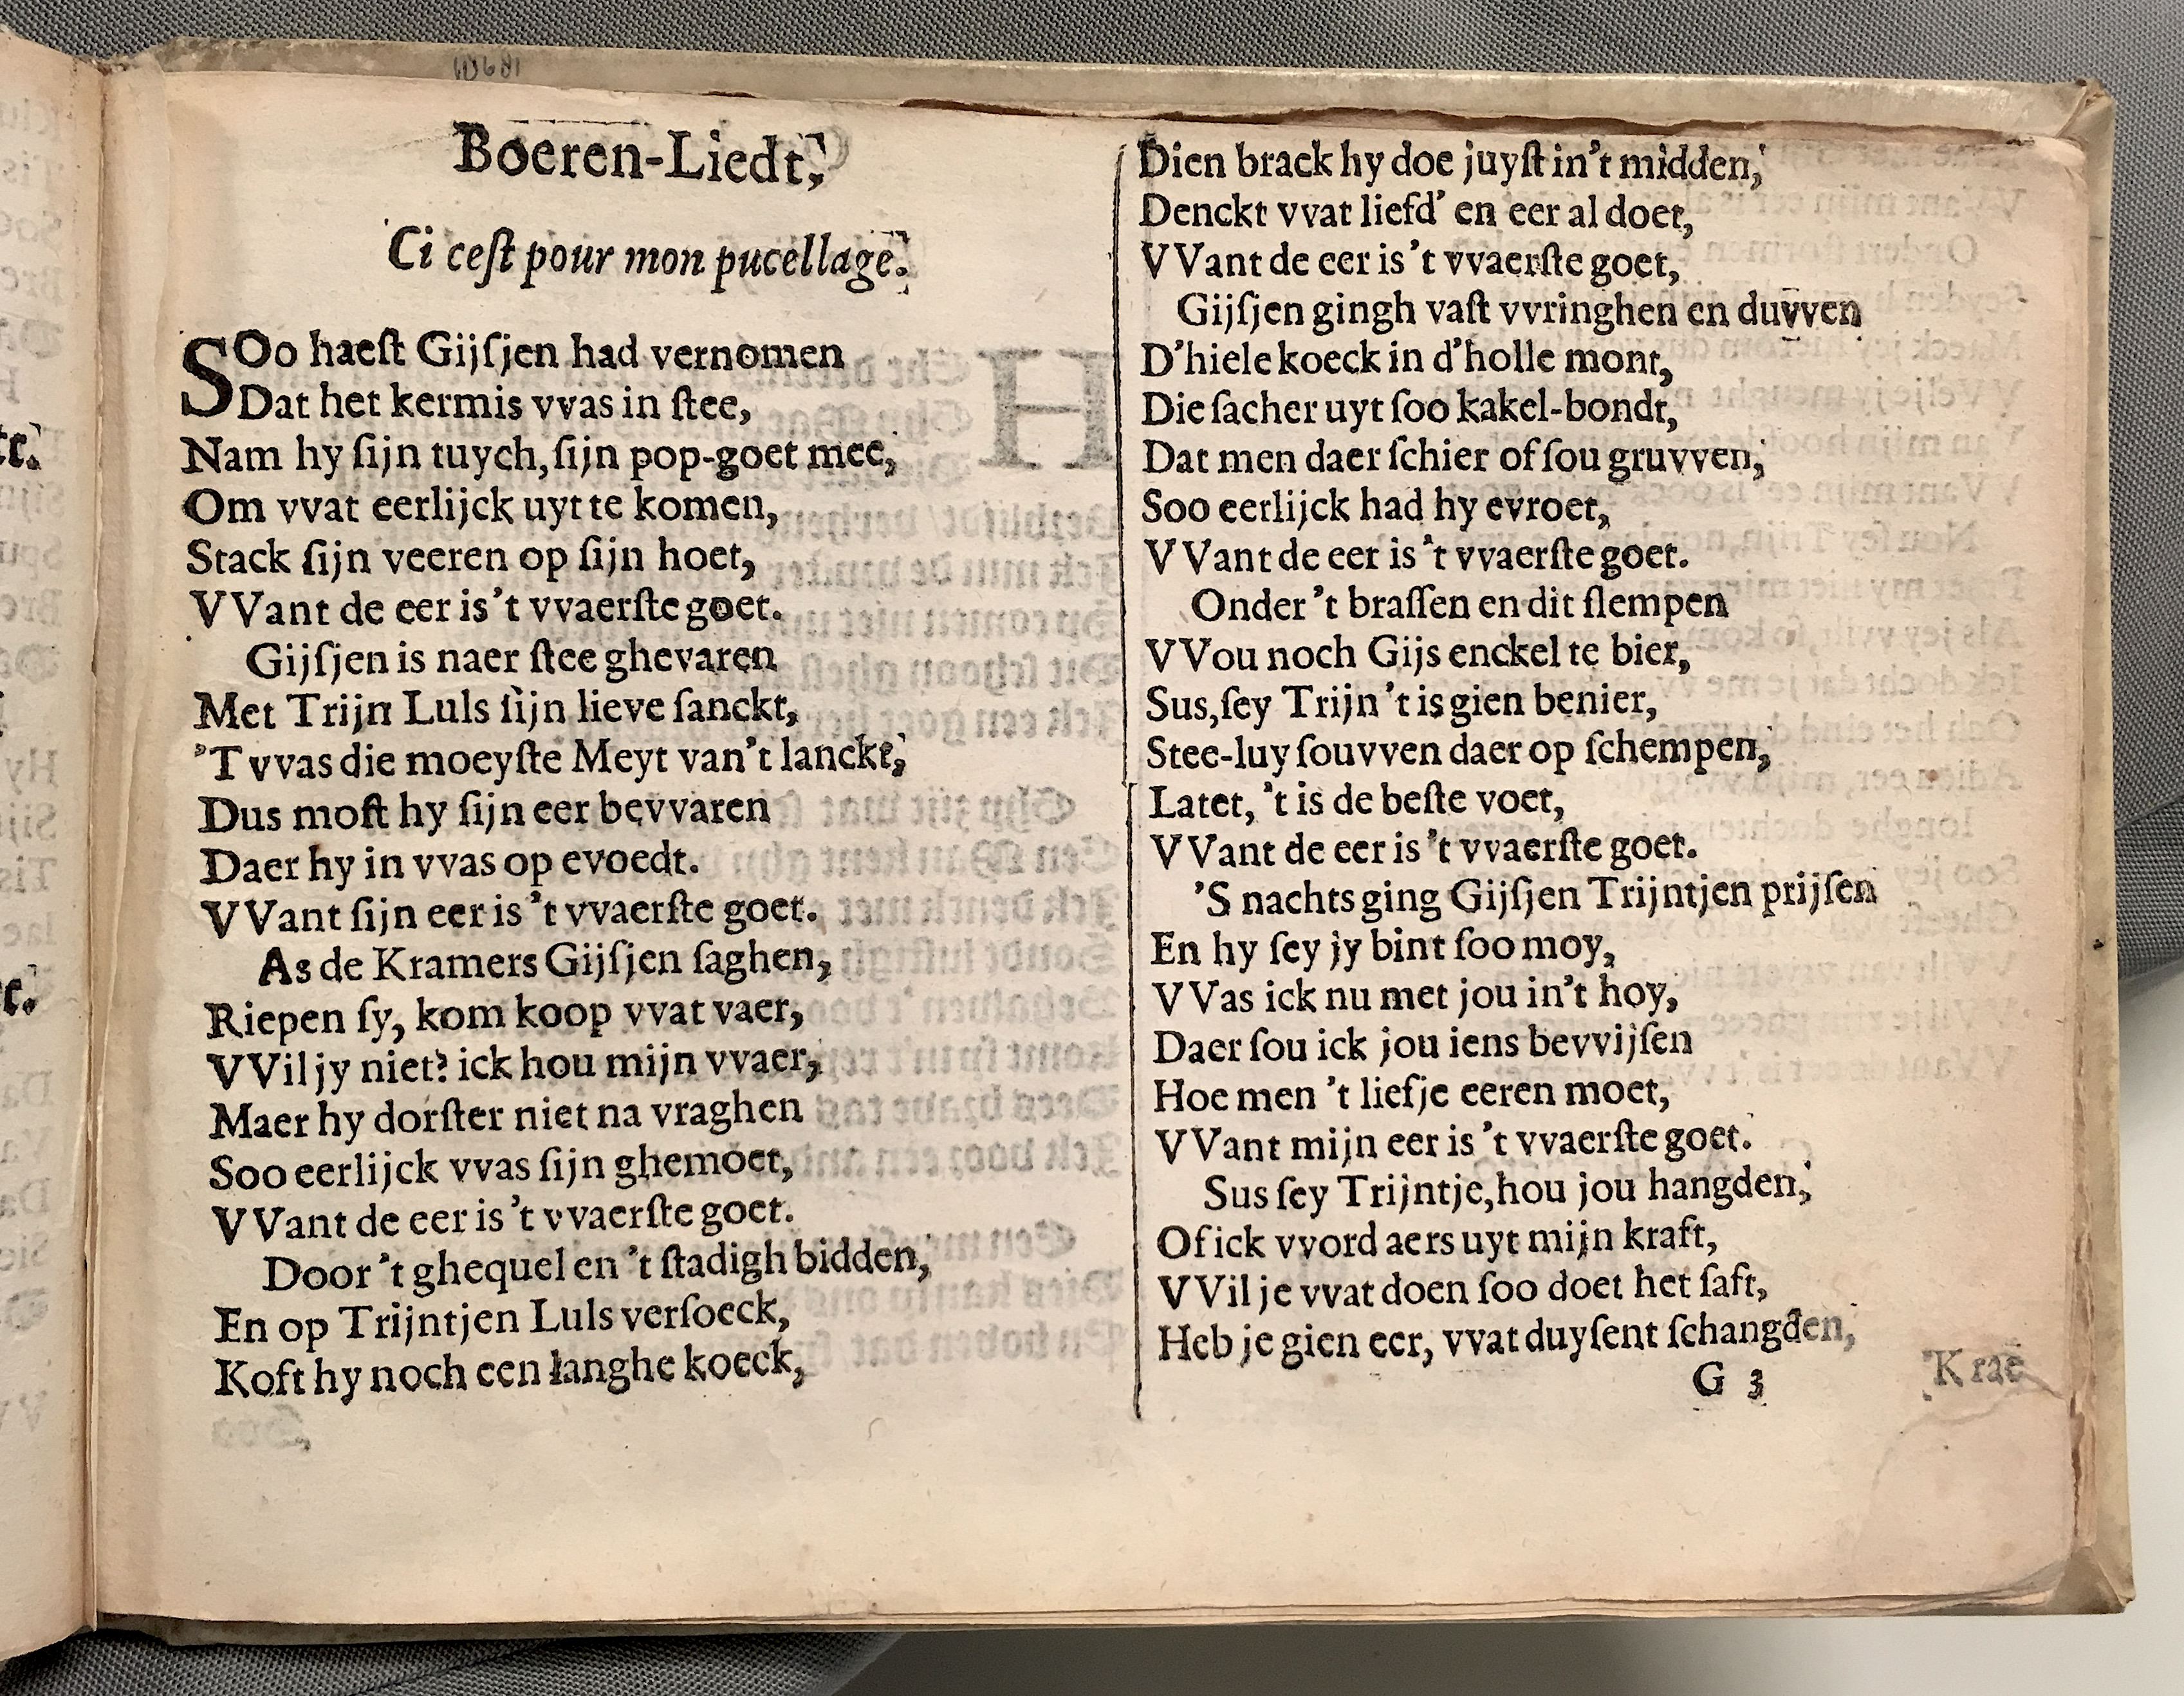 Boeren-Liedt,
Ci cest pour mon pucellage.
SOo haeſt Gijſjen had vernomen
Dat het kermis vvas in ſtee,
Nam hy ſijn tuych, ſijn pop-goet mee,
Om vvat eerlijck uyt te komen,
Stack ſijn veeren op ſijn hoet,
VVant de eer is 't vvaerſte goet.
Gijſjen is naer ſtee ghevaren
Met Trijn Luls ſijn lieve ſanckt,
'T vvas die moeyſte Meyt van 't lanckt,
Dus moſt hy ſijn eer bevvaren
Daer hy in vvas op evoedt.
VVant ſijn eer is 't vvaerſte goet.
As de Kramers Gijſjen ſaghen,
Riepen ſy, kom koop vvat vaer,
VVil jy niet? ick hou mijn vvaer,
Maer hy dorſter niet na vraghen
Soo eerlijck vvas ſijn ghemoet,
VVant de eer is 't vvaerſte goet.
Door 't ghequel en 't ſtadigh bidden,
En op Trijntjen Luls verſoeck,
Koft hy noch een langhe koeck,
Dien brack hy doe juyſt in't midden,
Denckt vvat liefd' en eer al doet,
VVant de eer is 't vvaerſte goet,
Gijſjen gingh vaſt vvringhen en duvven
D'hiele koeck in d'holle mont,
Die ſacher uyt ſoo kakel-bondt,
Dat men daer ſchier of ſou gruvven,
Soo eerlijck had hy evroet,
VVant de eer is 't vvaerſte goet.
Onder 't braſſen en dit ſlempen
VVou noch Gijs enckel te bier,
Sus, ſey Trijn 't is gien benier,
Stee-luy ſouvven daer op ſchempen,
Latet, 't is de beſte voet,
VVant de eer is 't vvaerſte goet.
'S nachts ging Gijſjen Trijntjen prijſen
En hy ſey jy bint ſoo moy,
VVas ick nu met jou in't hoy,
Daer ſou ick jou iens bevvijſen
Hoe men 't liefje eeren moet,
VVant mijn eer is 't vvaerſte goet.
Sus ſey Trijntje, hou jou hangden,
Of ick vvord aers uyt mijn kraft,
VVil je vvat doen ſoo doet het ſaft,
Heb je gien eer, vvat duyſent ſchangden,
G 3
Krae